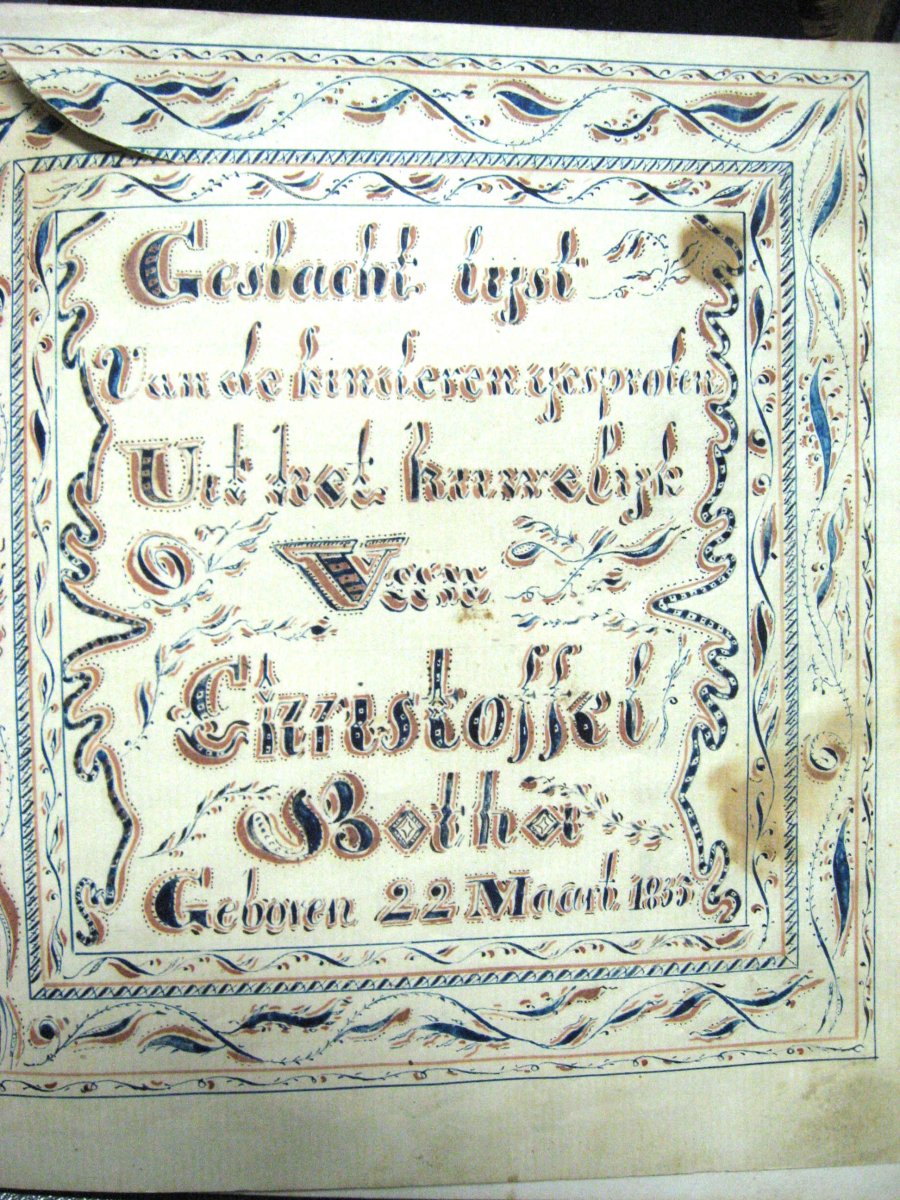 Geslacht lyst
Van de kinderen gesproten
Uit het huwelijk
Van
Christoffel
Botha
Geboren 22 Maart 1835